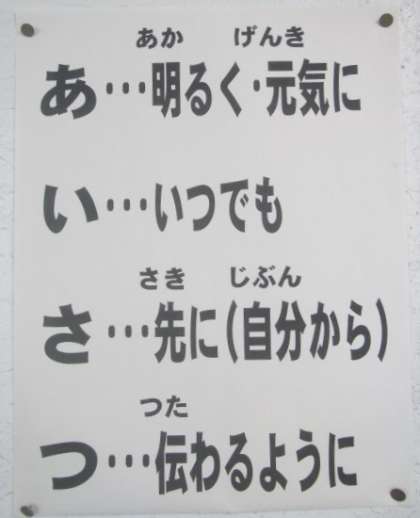 あか げんき
あ…明るく・元気に
い…いつでも
さき じぶん
さ…先に(自分から)
つた
つ…伝わるように